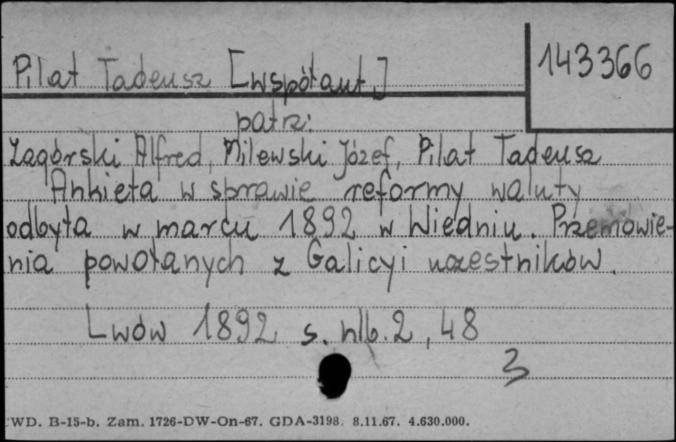 Pilat Tadeusz [współaut.]
143366
patrz:
Zagórski Alfred, Milewski Józef, Pilat Tadeusz
Ankieta w sprawie reformy waluty
odbyta w marcu 1892 w Wiedniu. Przemówie-
nia powołanych z Galicyi uczestników.
Lwów 1892 s. nlb. 2, 48
3
WD. B-15-b. Zam. 1726-DW-On-67. GDA-3198. 8.11.67. 4.630.000.